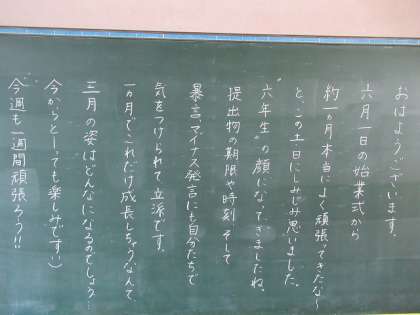 おはようございます。
六月一日の始業式から
約一ヵ月本当によく頑張ってきたな〜
と、この土日にしみじみ思いました。
"六年生"の顔になってきましたね。
提出物の期限や時刻、そして
暴言、マイナス発言にも自分たちで
気をつけられて立派です。
一ヵ月でこれだけ成長しちゃうなんて、
三月の姿はどんなになるのでしょう…
今からとーっても楽しみです(^^)
今週も一週間頑張ろう!!